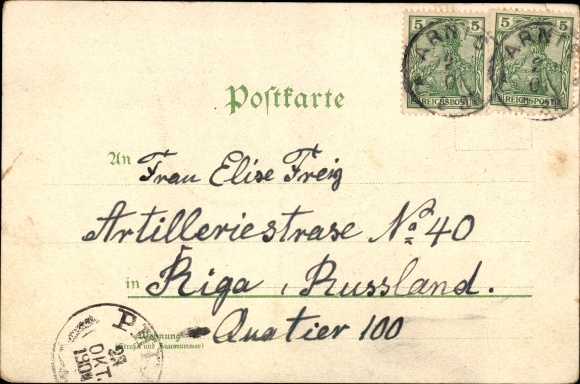 5 5 5 5
REICHSPOST REICHSPOST
ARNIS ARNIS
Postkarte
An Frau Elise Freig
Artilleriestrase No 40
in Riga, Russland.
Wohnung
(Straße und Hausnummer)
Quatier 100
29
OKT.